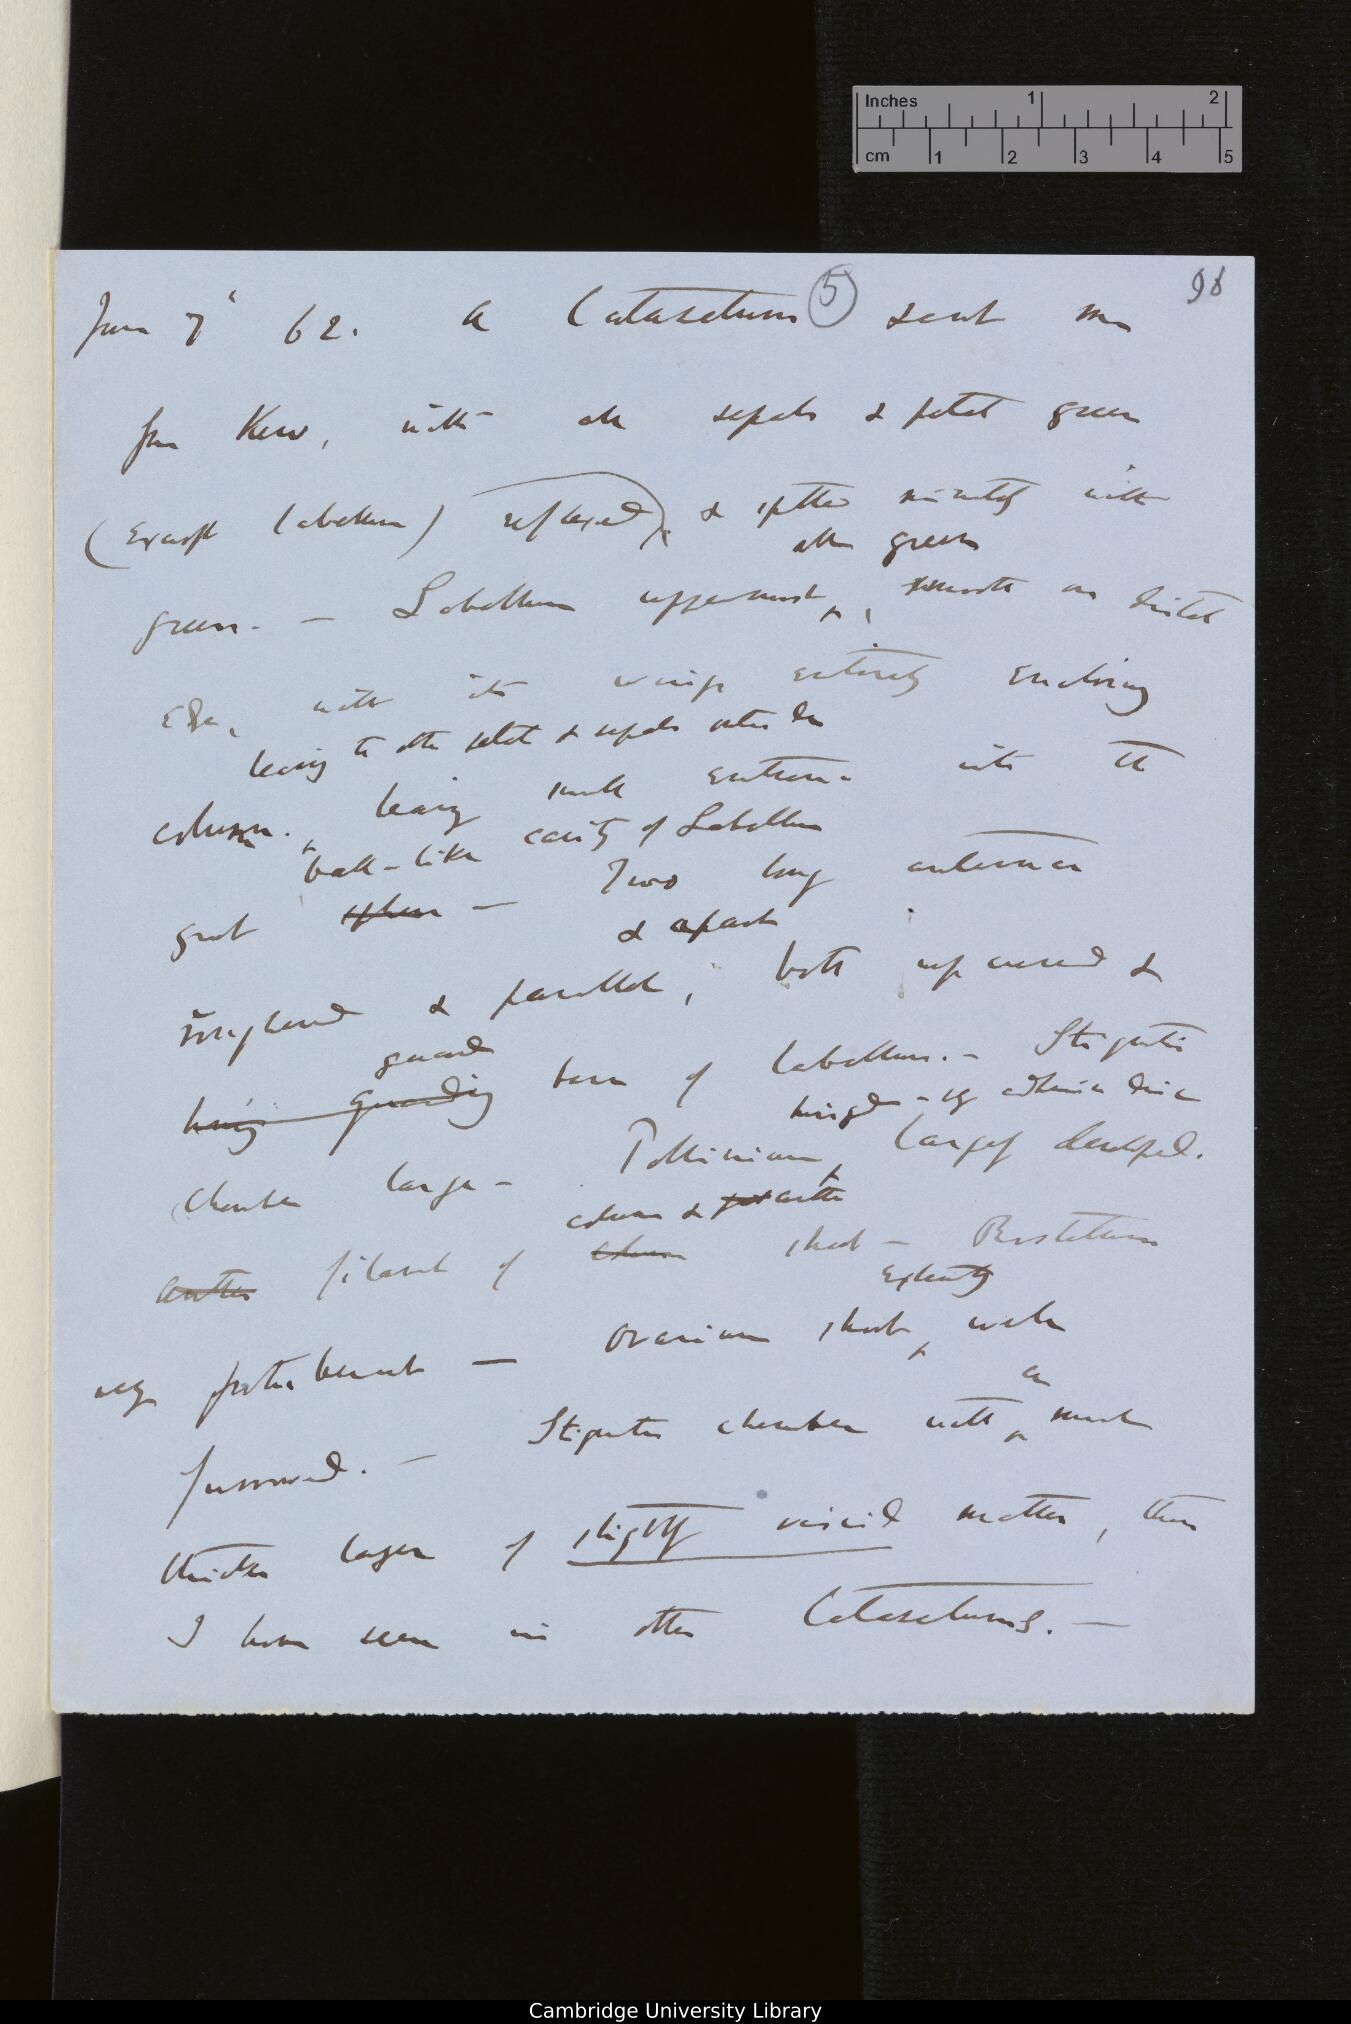 Inches 1 2
cm 1 2 3 4 5
98
5
June 7' 62. A Catasetum sent me
from Kew, with all sepals & petals green
(except labellum) reflexed, & spotted minutely with
all green
green. — Labellum uppermost, smooth on distal
edge, with its wings entirely enclosing
to other petals & sepals
column. leaving small entrance into the
cavity of Labellum
great — Two long antennæ
& apart
& parallel, both upcurved &
guard
having guarding base of labellum. — Stigmatic
hinged
chamber large — Pollinium, largely developed.
column & anther
anther filament of short — Rostellum
very protuberant — Ovarium short,
an
furrowed. — Stigmatic chamber with much
thicker layer of slightly viscid matter, than
I have seen in other Catasetums. —
Cambridge University Library